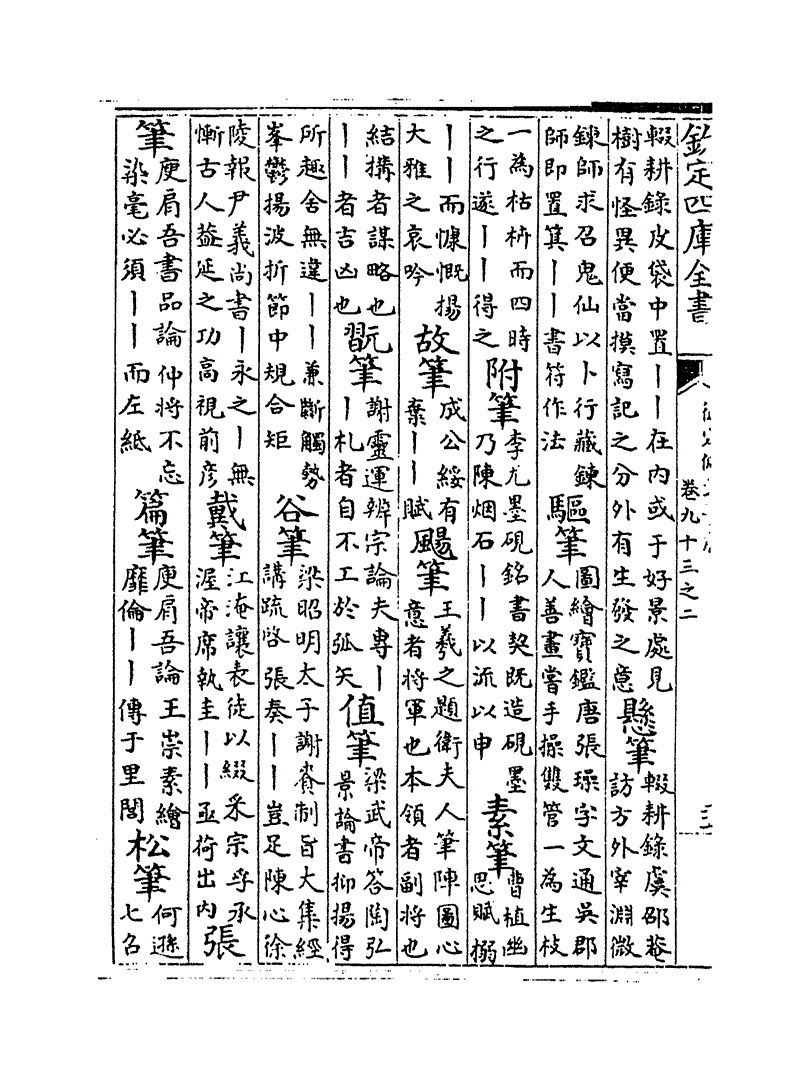 欽定四庫全書
卷九十三之二
輟耕錄皮袋中置丨丨在内或于好景處見
樹有怪異便當摸寫記之分外有生發之意
懸筆
輟耕錄虞邵菴
訪方外宰淵微
鍊師求召鬼仙以卜行藏鍊
師即置箕丨丨書符作法
驅筆
圖繪寶鑑唐張璪字文通吳郡
人善畫嘗手操雙管一為生枝
一為枯枿而四時
之行遂丨丨得之
附筆
李尤墨硯銘書契既造硯墨
乃陳烟石丨丨以流以申
素筆
曹植幽
思賦搦
丨丨而慷慨揚
大雅之哀吟
故筆
成公綏有
棄丨丨賦
颺筆
王羲之題衛夫人筆陣圖心
意者將軍也本領者副將也
結搆者謀略也
丨丨者吉凶也
翫筆
謝靈運辨宗論夫專丨
丨札者自不工於弧矢
值筆
梁武帝答陶弘
景論書抑揚得
所趣舍無違丨丨兼斷觸勢
峯鬱揚波折節中規合矩
谷筆
梁昭明太子謝賚制旨大集經
講疏啓張奏丨丨豈足陳心徐
陵報尹義尚書丨永之丨無
慚古人益延之功高視前彦
戴筆
江淹讓表徒以綴采宗孚承
渥帝席執圭丨丨亟荷出内
張
筆
庾肩吾書品論仲將不忘
染毫必須丨丨而左紙
篇筆
庾肩吾論王崇素繪
靡倫丨丨傳于里閭
松筆
何遜
七召